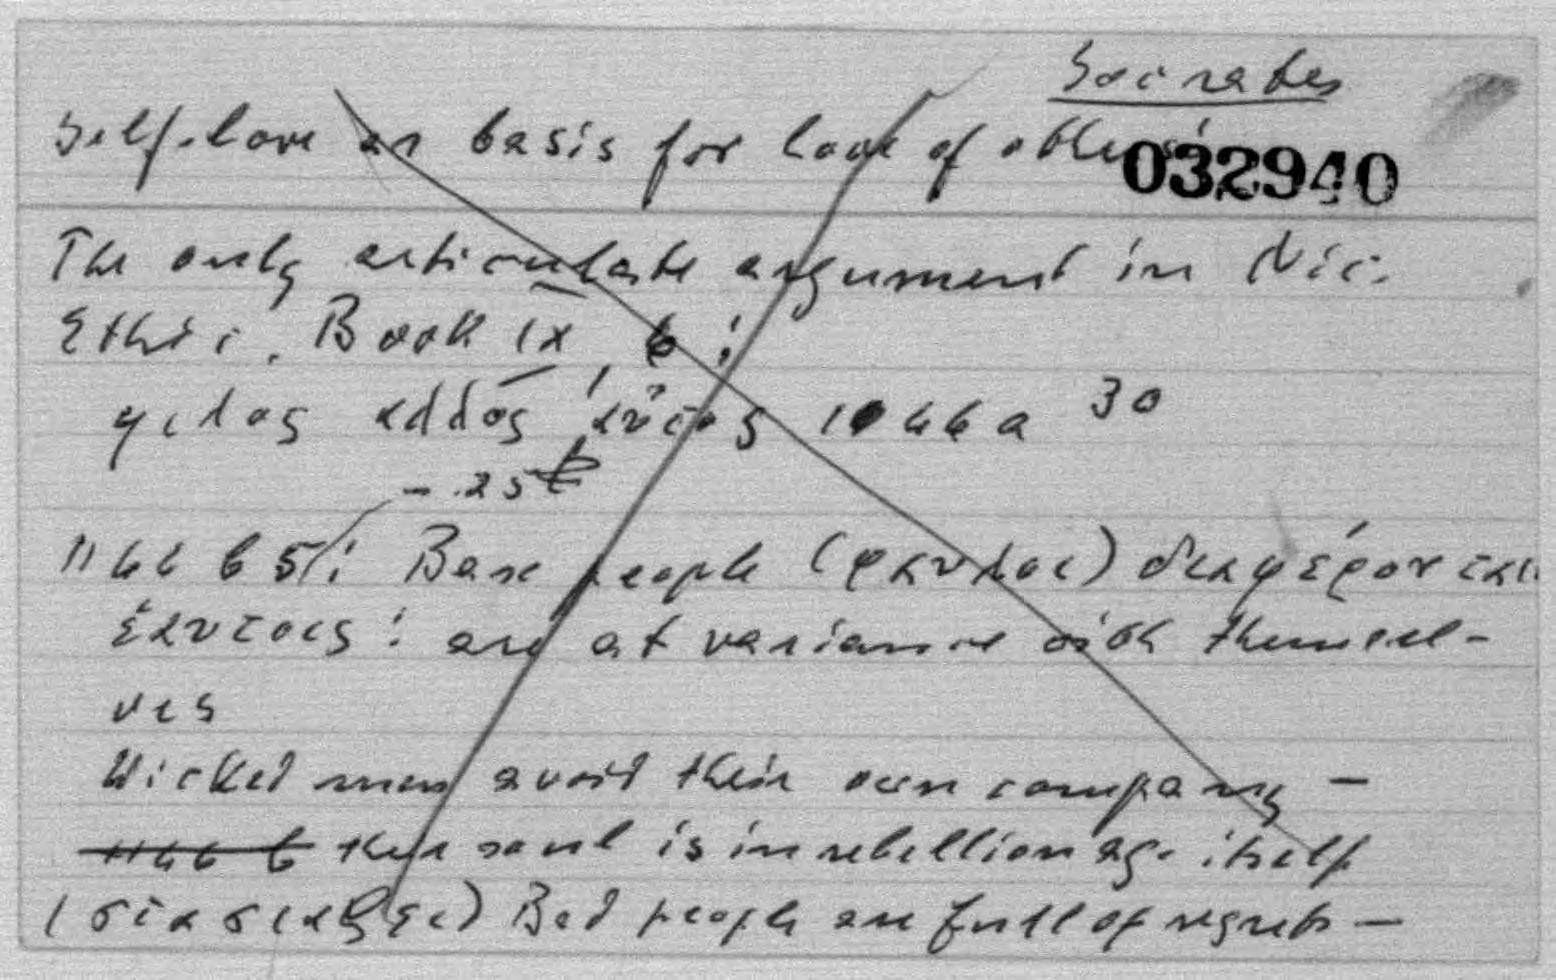 Socrates
Self-love as basis for love of others
032940
The only articulate argument in Nic.
Ethic. Book IX, 6 :
φιλος αλλος αυτος 1166a 30
- 25
1166 b 5 : Base people (φαυλοι) διαφέρονται
ἑαυτοις : are at variance with themsel-
ves
Wicked men avoid their own company -
1166 b their soul is in rebellion ag. itself
(στασιαζει) Bad people are full of regrets -